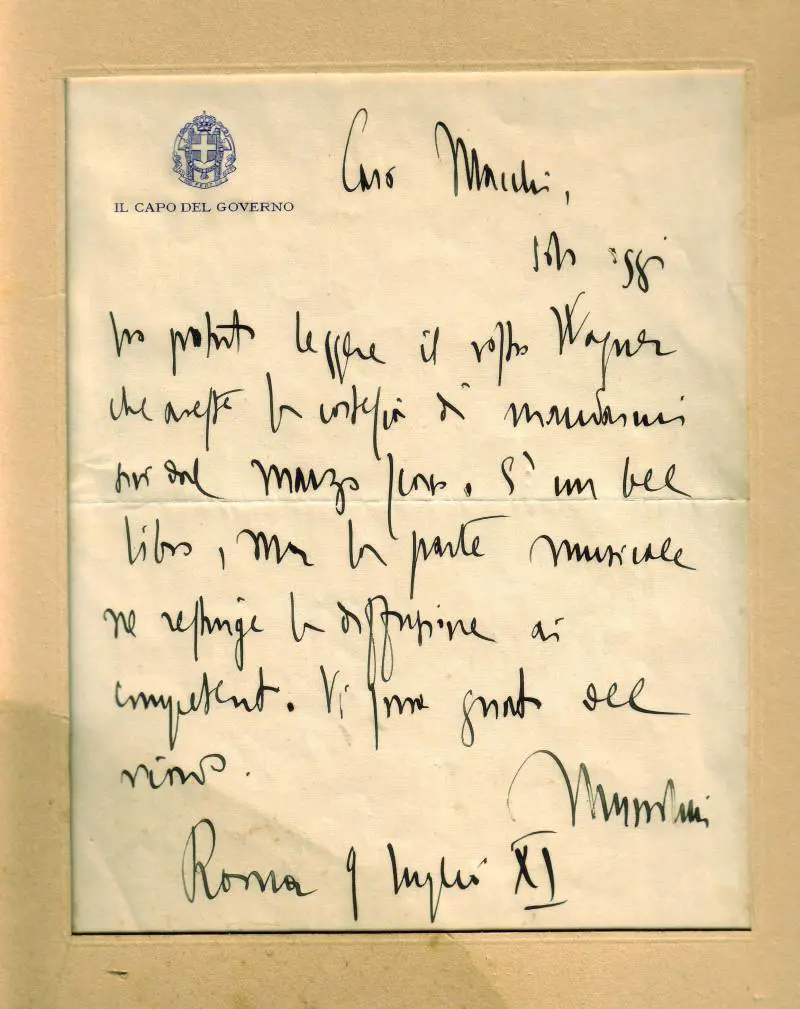 IL CAPO DEL GOVERNO
Caro Macchi,
solo oggi
ho potuto leggere il vostro Wagner
che aveste la cortesia di mandarmi
sin dal marzo scorso. E' un bel
libro, ma la parte musicale
ne restringe la diffusione ai
competenti. Vi sono grato del
ricordo.
Mussolini
Roma 9 luglio XI